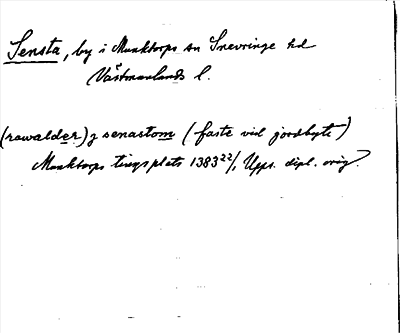 Sensta, by i Munktorps sn Snevringe hd
Västmanlands l.
(rawalder) j senastom (faste vid jordbyte)
Munktorps tingsplats 1383 22/1 Upps. dipl. orig.